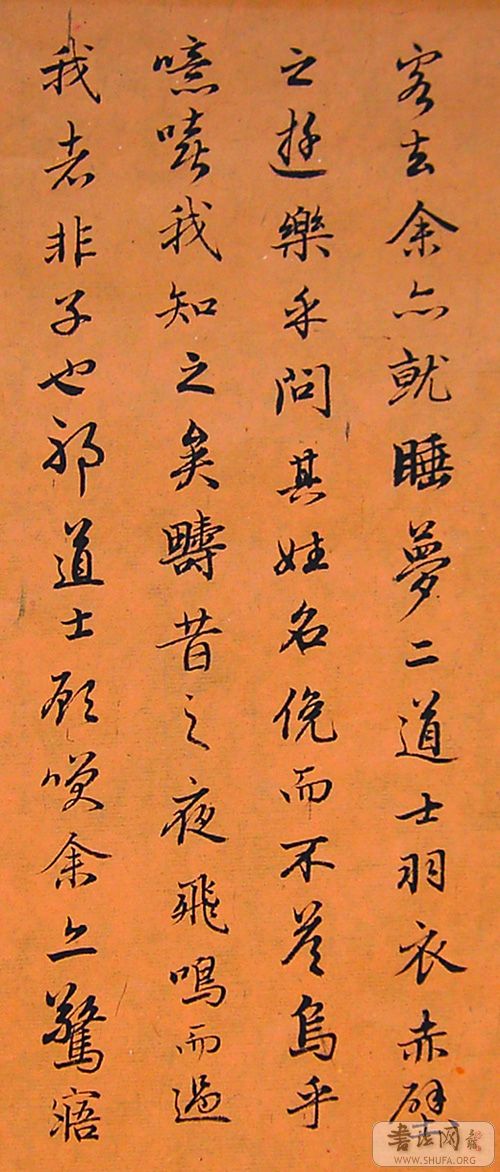 客去余亦就睡夢二道士羽衣赤壁
之遊樂乎問其姓名俛而不答烏乎
噫嘻我知之矣疇昔之夜飛鳴而過
我者非子也耶道士顧咲余亦驚寤
書法网
WWW.SHUFA.ORG